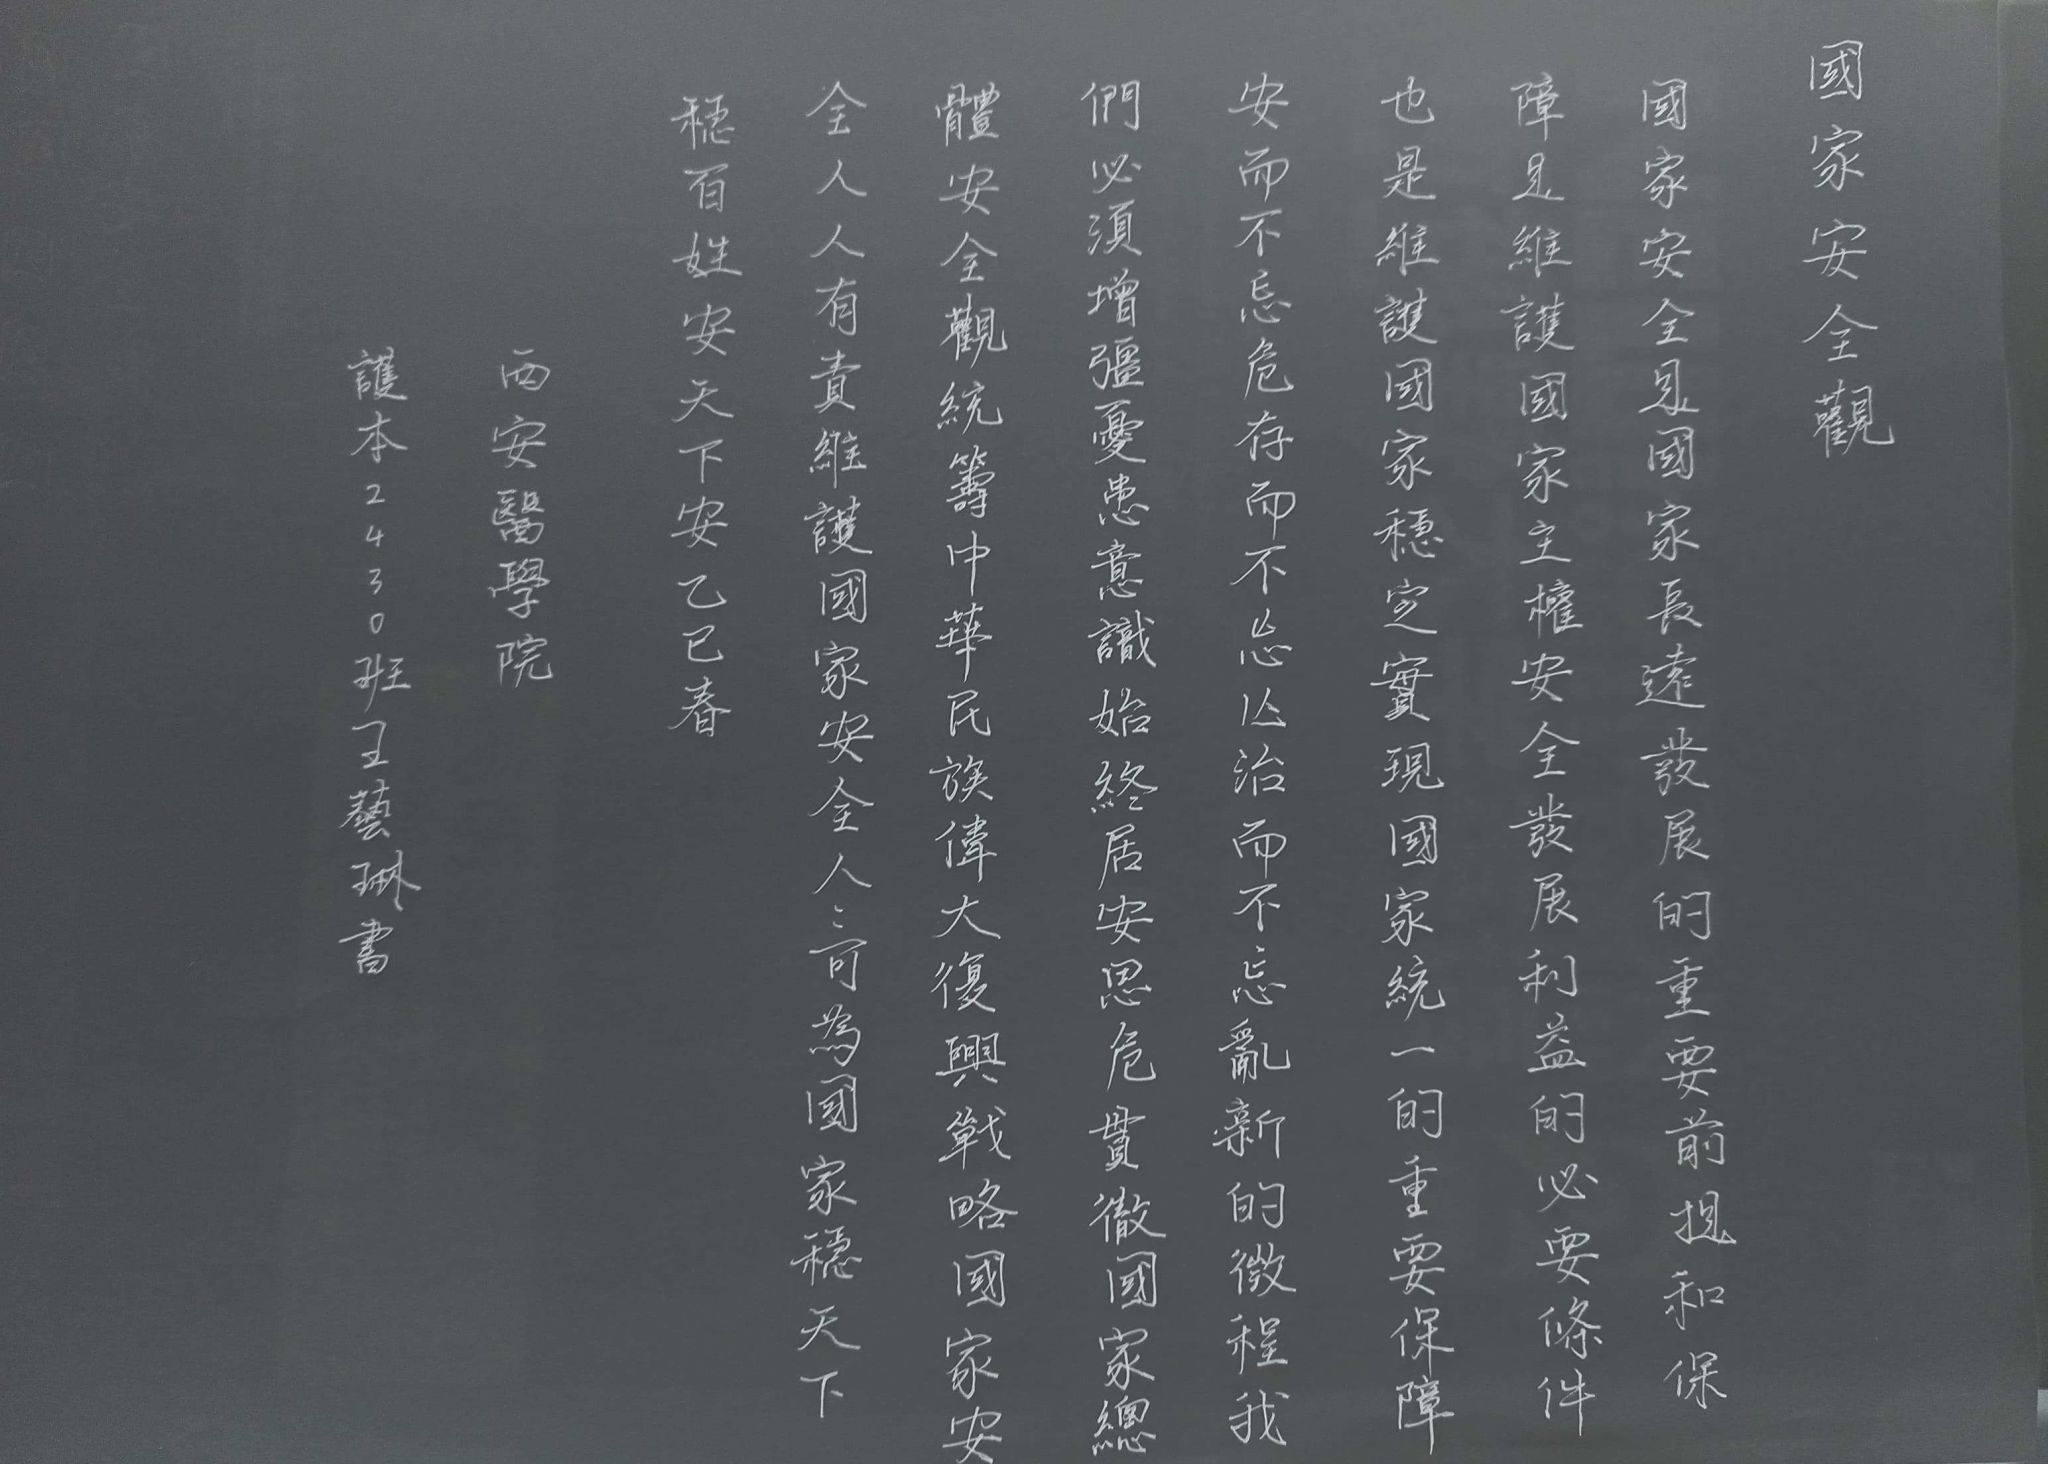 國家安全觀
國家安全是國家長遠發展的重要前提和保
障是維護國家主權安全發展利益的必要條件
也是維護國家穩定實現國家統一的重要保障
安而不忘危存而不忘亡治而不忘亂新的徵程我
們必須增強憂患意識始終居安思危貫徹國家總
體安全觀統籌中華民族偉大復興戰略國家安
全人人有責維護國家安全人人可為國家穩天下
穩百姓安天下安乙巳春
西安醫學院
護本2430班王藝琳書